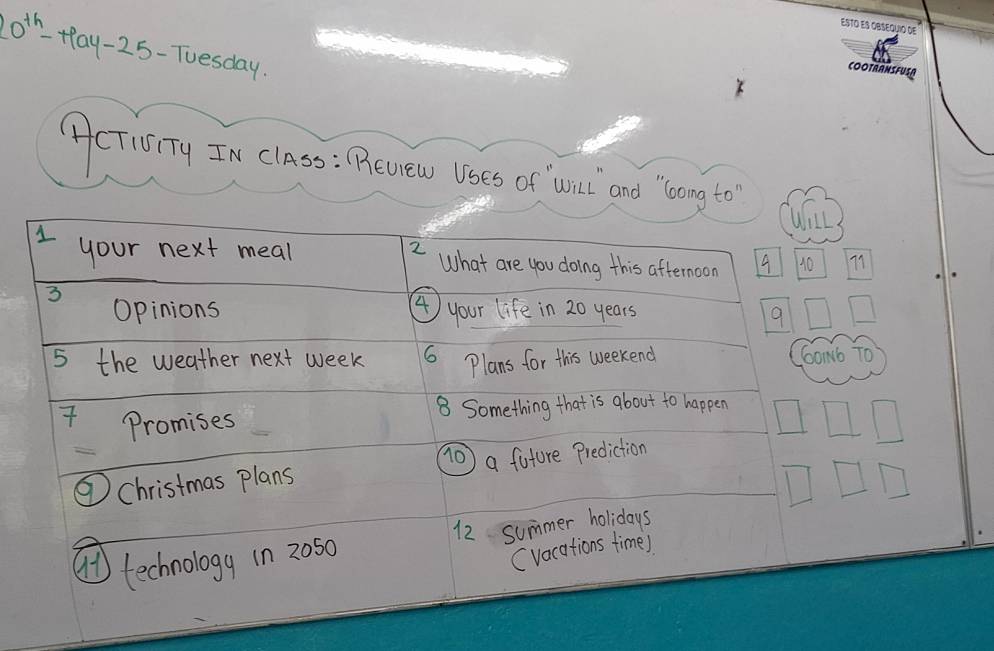 20th - May - 25 - Tuesday.
ESTO ES OBSEQUIO DE
COOTRANSFUSA
ACTIVITY IN CLASS: REVIEW USES OF "WILL" and "Going to"
1 your next meal
2 What are you doing this afternoon
3 Opinions
4 your life in 20 years
5 the weather next week
6 Plans for this weekend
7 Promises
8 Something that is about to happen
9 Christmas plans
10 a future Prediction
11 technology in 2050
12 summer holidays
(vacations time)
WILL
4 10 11
9
GOING TO